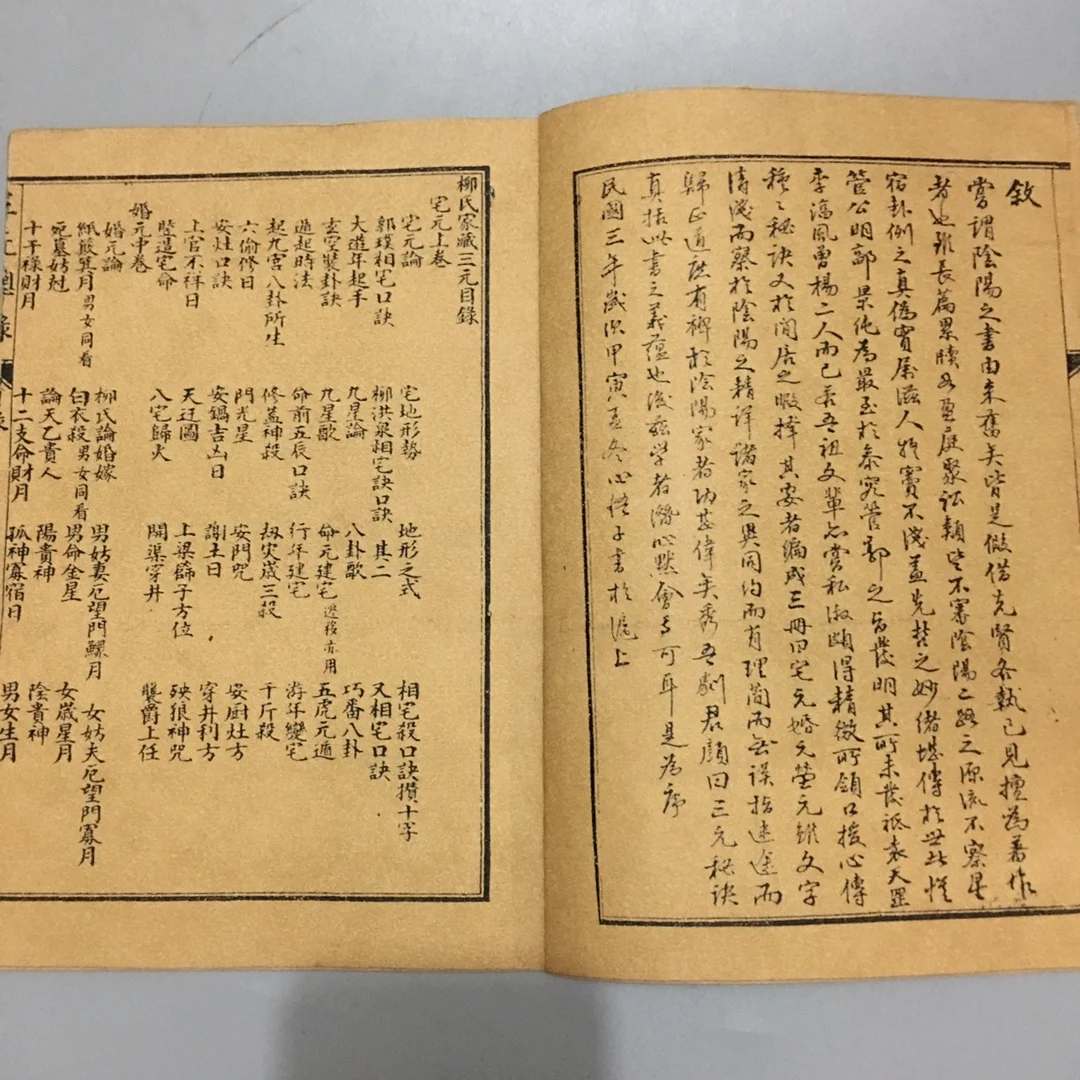 敘
嘗謂陰陽之書由來舊矣皆是做借先賢各執己見擅為著作
者也雖長篇累牘如盈庭聚訟類皆不審陰陽二路之源流不察星
宿卦例之真偽實屬滋人物竇不淺蓋先哲之妙緒堪傳於世此惟
管公明郭景純為最至於泰究管郭之旨發明其所未發祗袁天罡
李淳風曾楊二人而已吾祖文輩亦嘗私淑頗得精微所領口授心傳
種種秘訣又於閒居之暇擇其要者編成三冊曰宅元婚元塋元雖文字
清淺而察於陰陽之精詳諸家之異同約而有理簡而無誤指迷途而
歸正道庶有裨於陰陽家者功甚偉矣秀吾劂君顔曰三元秘訣
真括此書之義蘊也後茲學者潛心默會焉可耳是為序
民國三年歲次甲寅孟冬心禪子書於滬上
柳氏家藏三元目錄
宅元上卷
宅元論 宅地形勢 地形之式 相宅殺口訣攢十字
郭璞相宅口訣 柳洪泉相宅訣口訣 其二 又相宅口訣
大遊年起手 九星論 八卦歌 巧番八卦
玄空裝卦訣 九星歌 命元建宅 遷移亦用 五虎元遁
遁起時法 命前五辰口訣 行年建宅 游年變宅
起九宮八卦所生 修蓋神殺 刼灾歲三殺 千斤殺
六偷修日 門光星 安門咒 安厨灶方
安灶口訣 安鍋吉凶日 謝土日 穿井利方
上官不祥日 天迁圖 上梁飾子方位 殃狼神咒
墜造宅命 八宅歸火 開渠穿井 襲爵上任
婚元中卷
婚元論 柳氏論婚嫁 男姑妻厄望門鰥月 女姑夫厄望門寡月
紙簸箕月 男女同看 白衣殺 男女同看 男命金星 女歲星月
宛墓妨尅 論天乙貴人 陽貴神 陰貴神
十干祿財月 十二支命財月 孤神寡宿日 男女生月